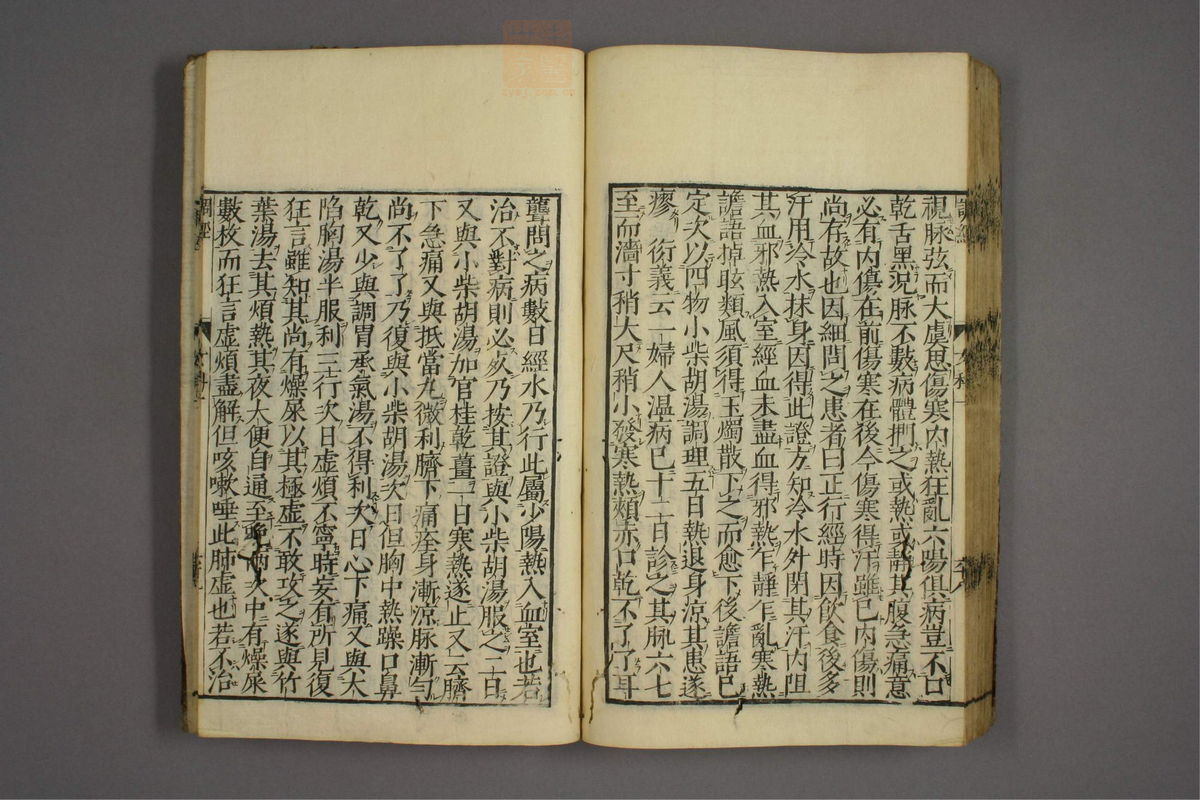 視脉弦而大虞思傷寒内熱狂亂六陽俱病豈不口
乾舌黑況脉不數病體捫之或熱或靜其腹急痛意
必有内傷在前傷寒在後今傷寒得汗雖已内傷則
尚存故也因細問之患者曰正行經時因飲食後多
汗用冷水抹身因得此證方知冷水外閉其汗内阻
其血邪熱入室經血未盡血得邪熱乍靜乍亂寒熱
譫語掉眩類風須得玉燭散下之而愈下後譫語已
定次以四物小柴胡湯調理五日熱退身涼其患遂
瘳　衍義云一婦人温病已十二日診之其脉六七
至而濇寸稍大尺稍小發寒熱頰赤口乾不了了耳
聾問之病數日經水乃行此屬少陽熱入血室也若
治不對病則必死乃按其證與小柴胡湯服之二日
又與小柴胡湯加官桂乾薑一日寒熱遂止又云臍
下急痛又與抵當丸微利臍下痛痊身漸涼脉漸匀
尚不了了乃復與小柴胡湯次日但胸中熱躁口鼻
乾又少與調胃承氣湯不得利次日心下痛又與大
陷胸湯半服利三行次日虚煩不寧時妄有所見復
狂言雖知其尚有燥屎以其極虚不敢攻之遂與竹
葉湯去其煩熱其夜大便自通至曉兩次中有燥屎
數枚而狂言虚煩盡解但咳嗽唾此肺虚也若不治